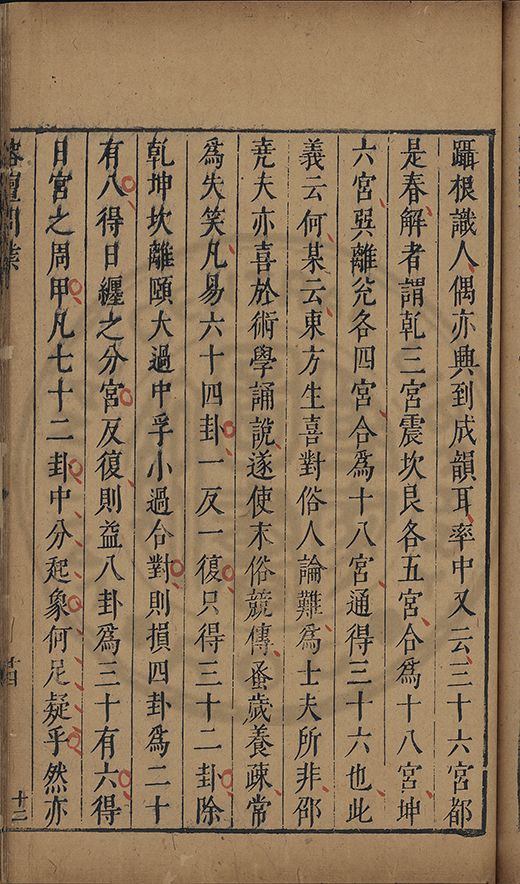 躡根識人偶亦興到成韻耳率中又云三十六宮都
是春解者謂乾三宮震坎艮各五宮合爲十八宮坤
六宮巽離兌各四宮合爲十八宮通得三十六也此
義云何某云東方生喜對俗人論難爲士夫所非邵
堯夫亦喜於術學誦說遂使末俗競傳蚤歲養疎常
爲失笑凡易六十四卦一反一復只得三十二卦除
乾坤坎離頤大過中孚小過合對則損四卦爲二十
有八得日纏之分宮反復則益八卦爲三十有六得
日宮之周甲凡七十二卦中分起象何足疑乎然亦
榕壇問業
十三